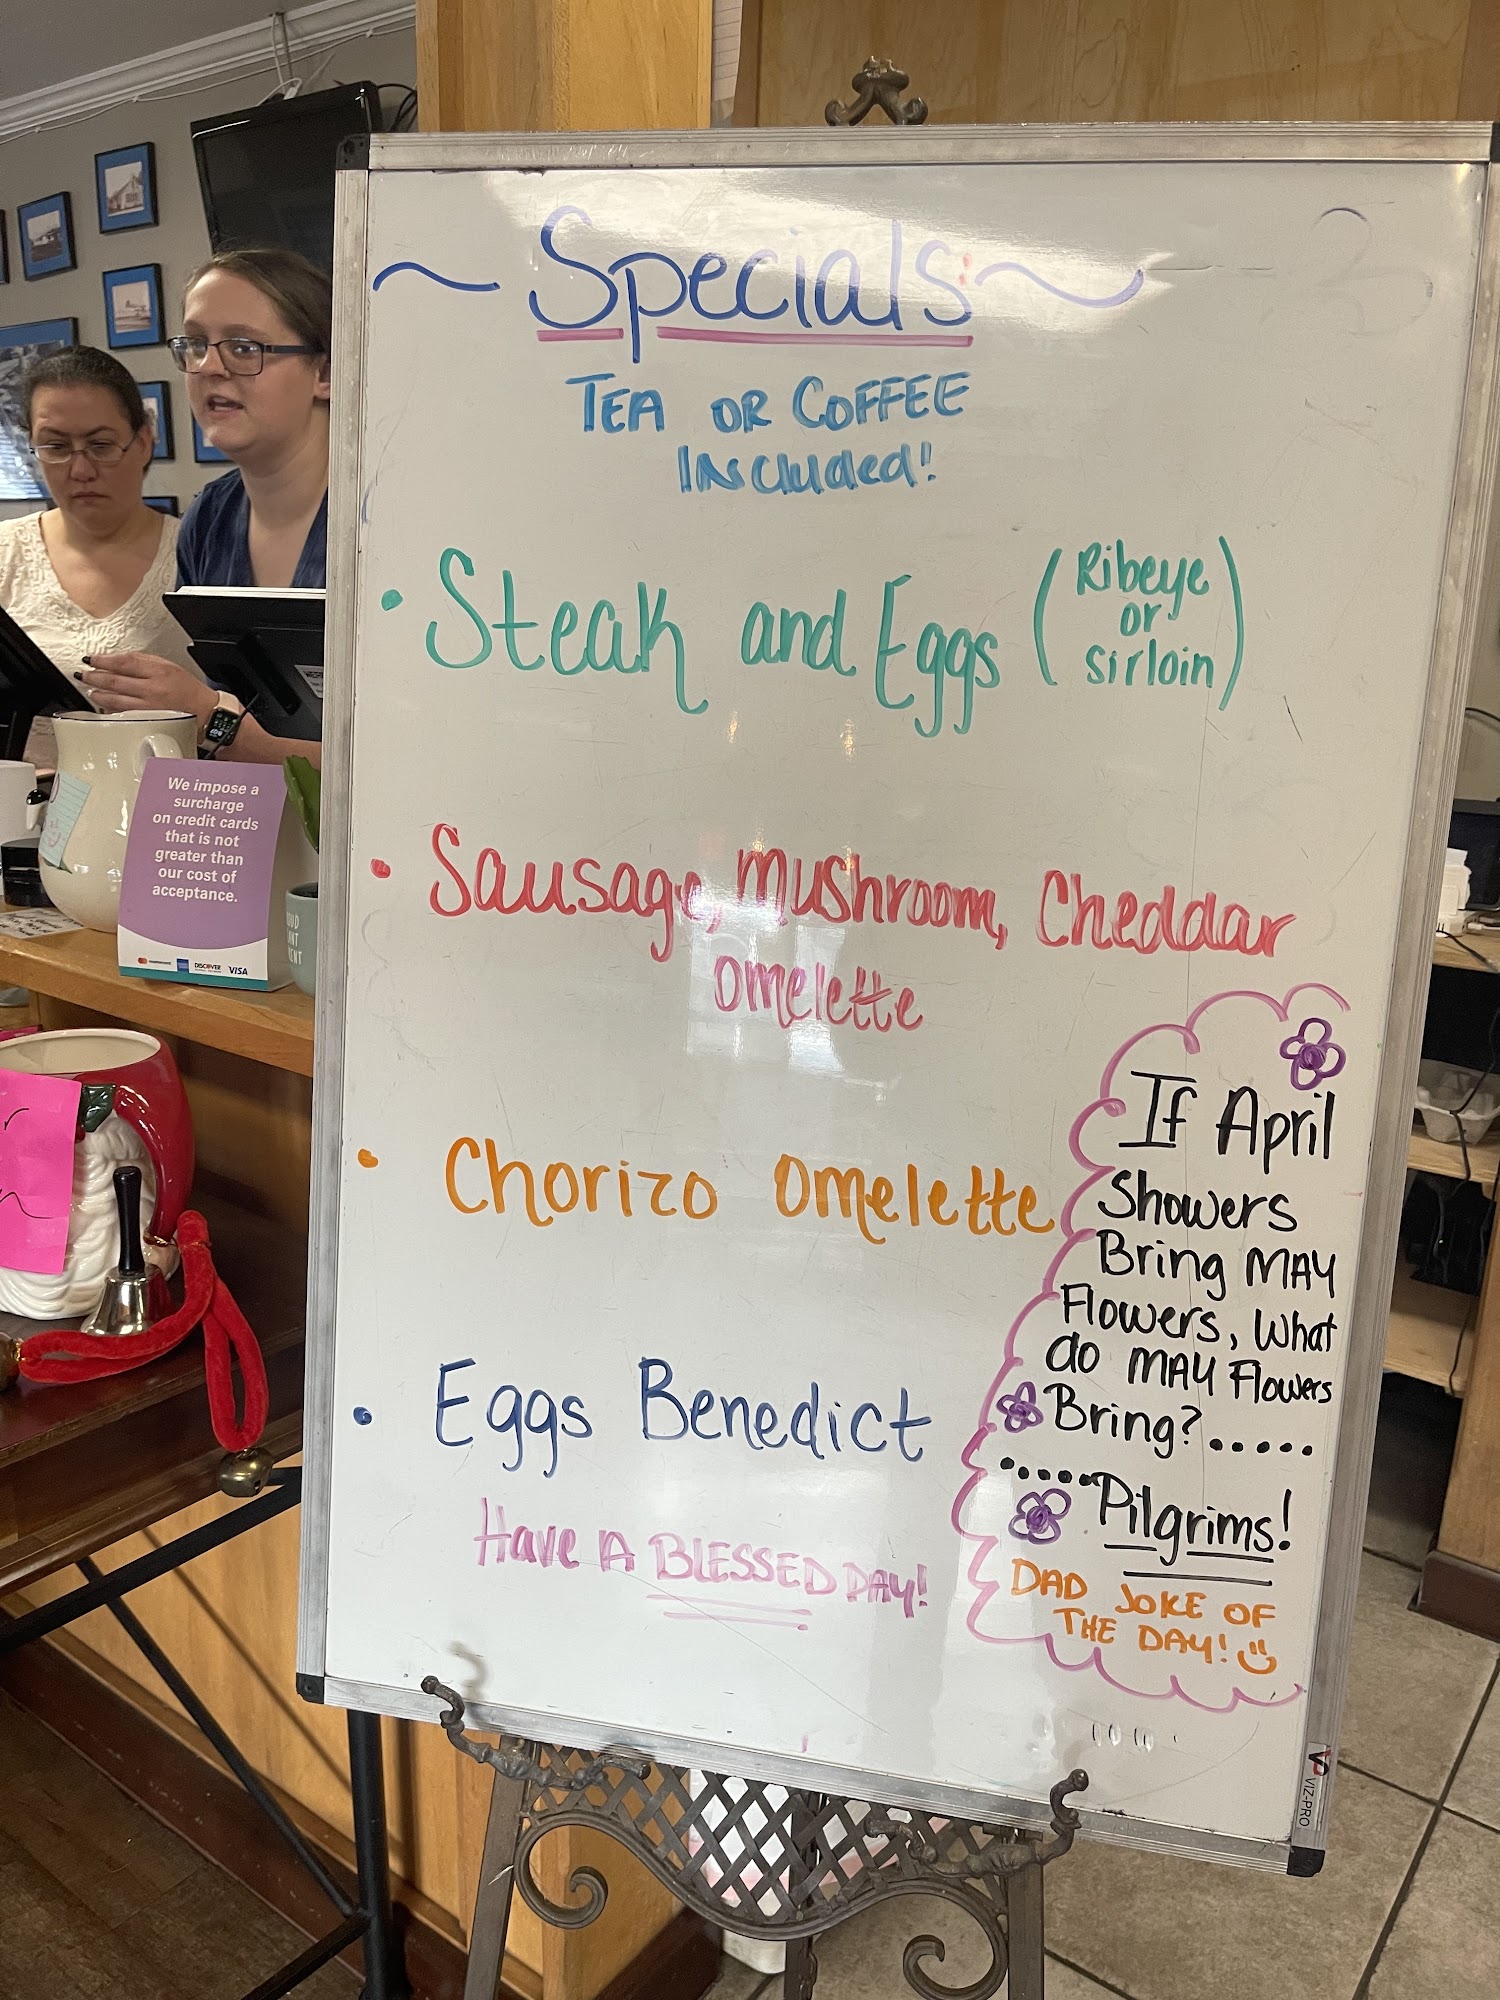 ~ Specials ~
TEA OR COFFEE
INCluded!
• Steak and Eggs (Ribeye
or
sirloin)
• Sausage, Mushroom, Cheddar
omelette
• Chorizo omelette
• Eggs Benedict
Have A BLESSED DAY!
If April
Showers
Bring MAY
Flowers, What
do MAY Flowers
Bring?.....
....."Pilgrims!
DAD JOKE OF
THE DAY!
We impose a
surcharge
on credit cards
that is not
greater than
our cost of
acceptance.
DISCOVER
VISA
VP VIZ-PRO